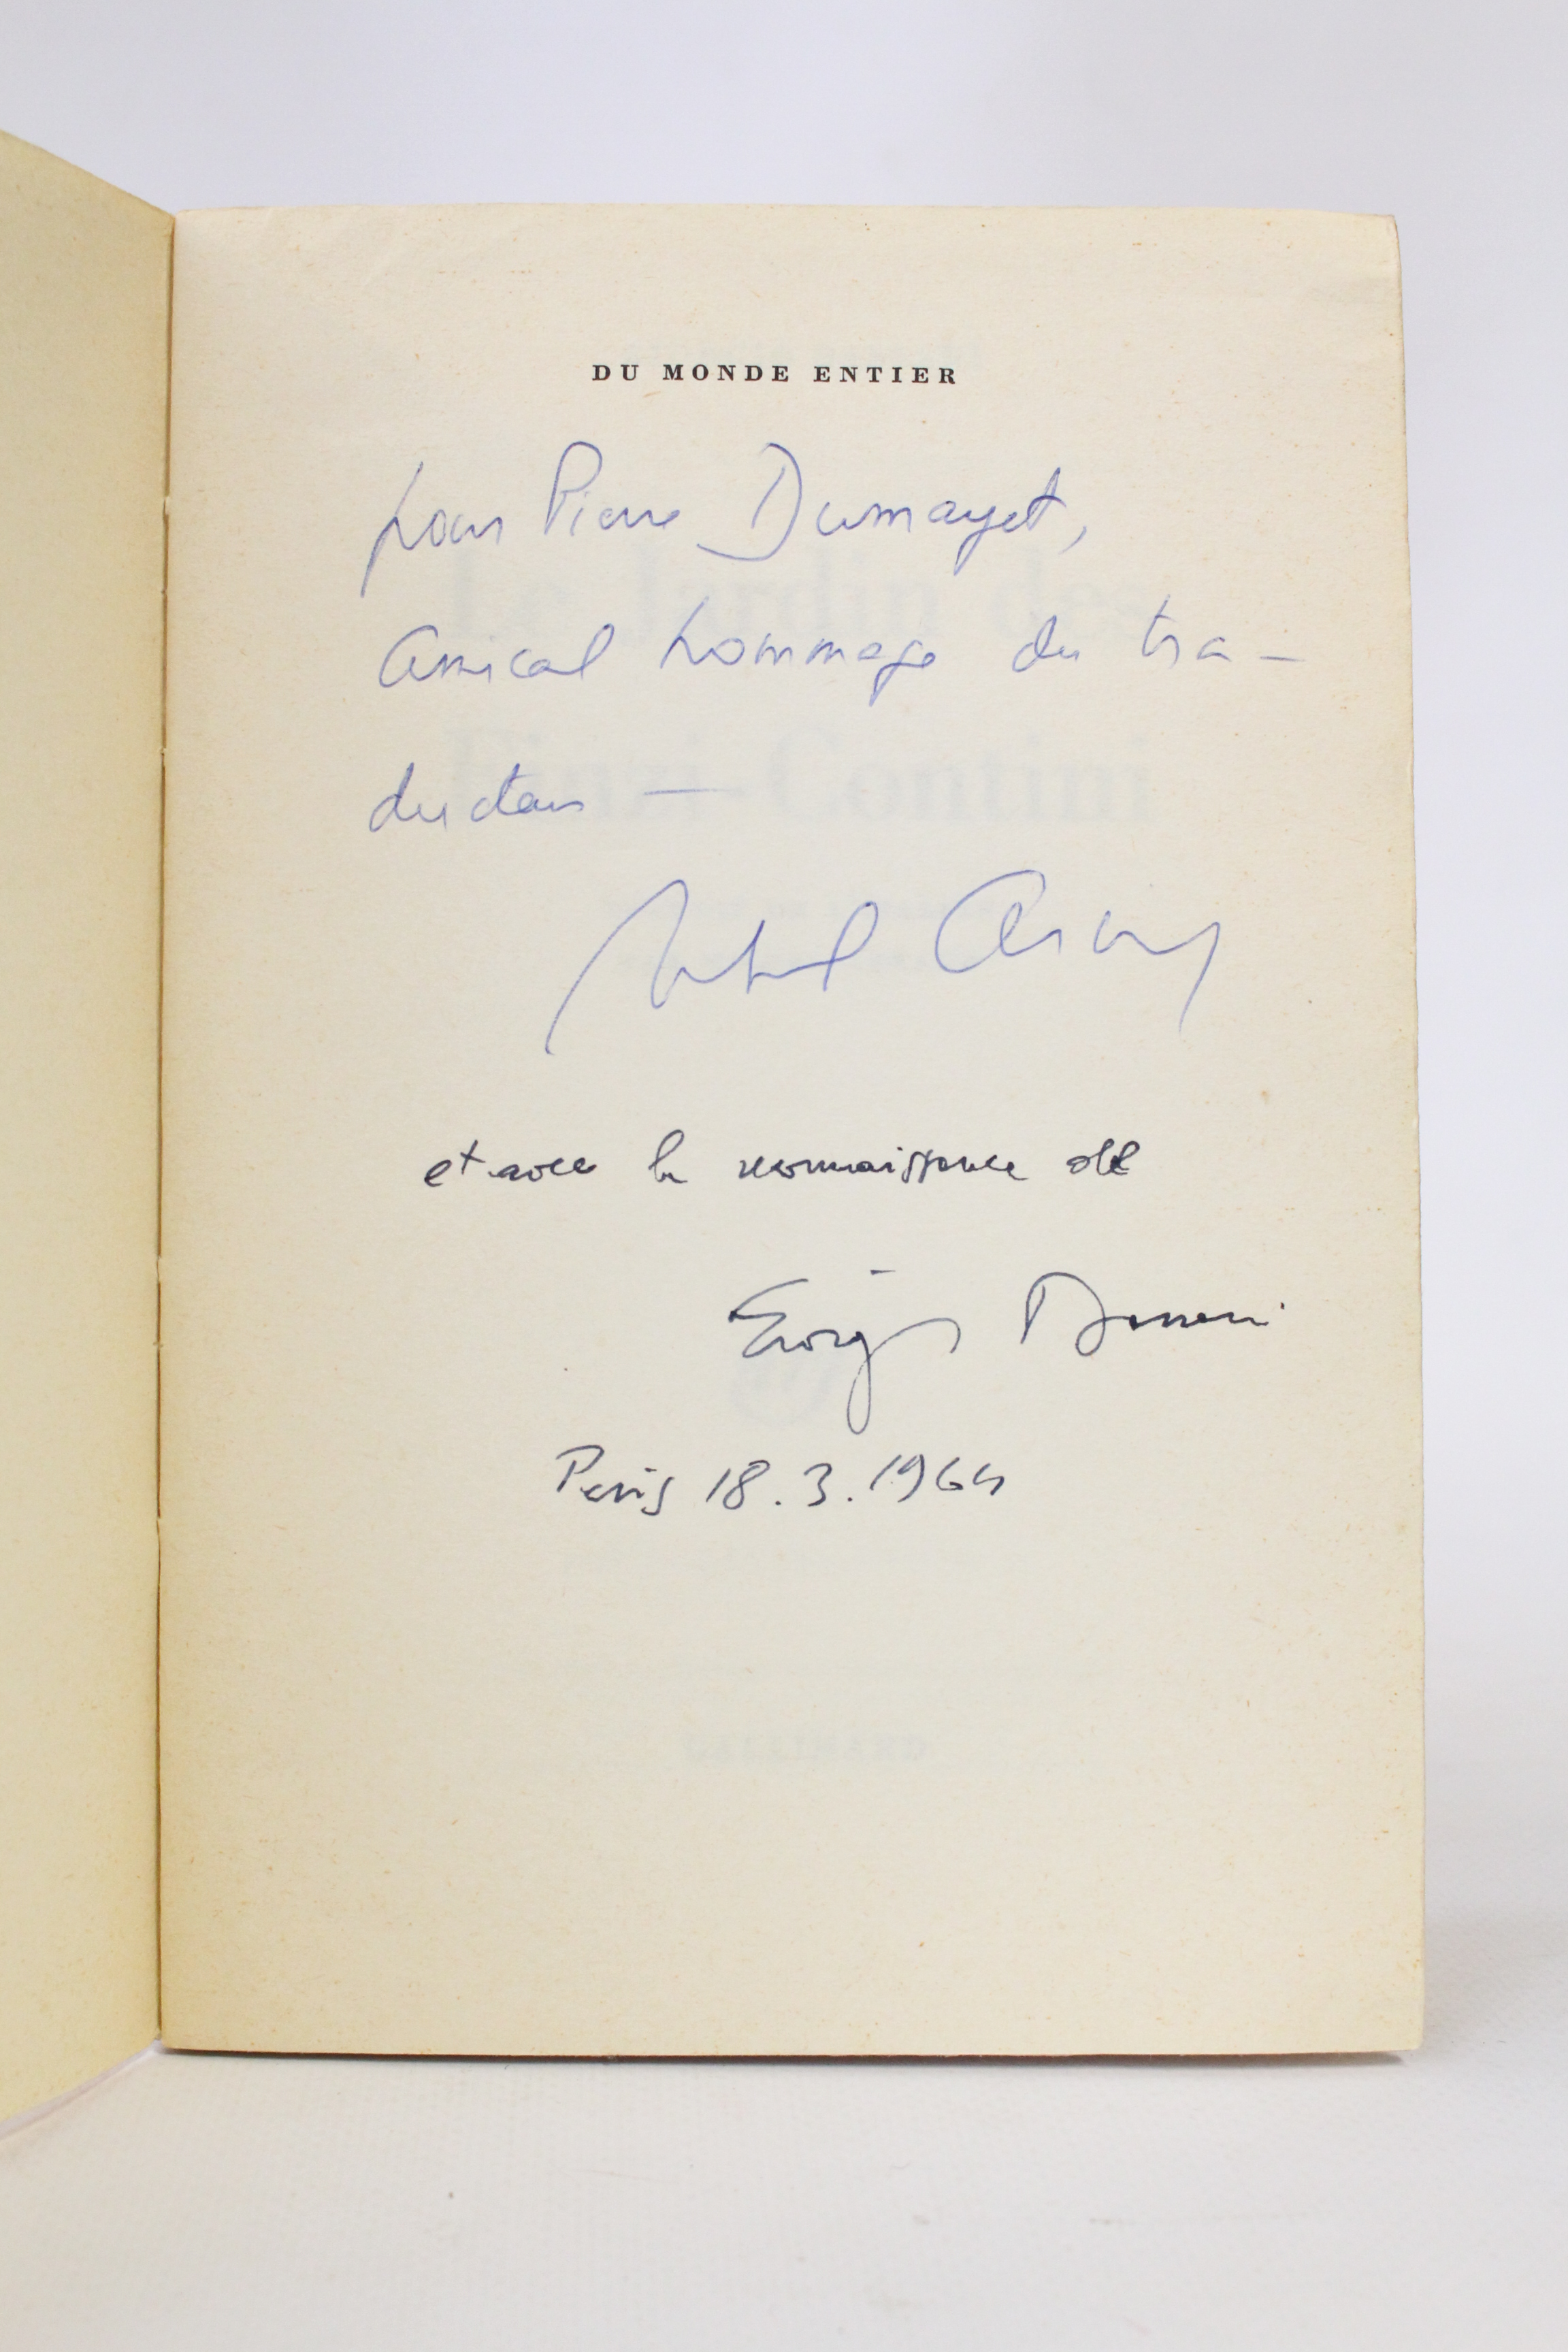 DU MONDE ENTIER
pour Pierre Dumayet,
Amical hommage du tra-
ducteur —
Michel Arnaud
et avec la reconnaissance de
Giorgio Bassani
Paris 18.3.1964